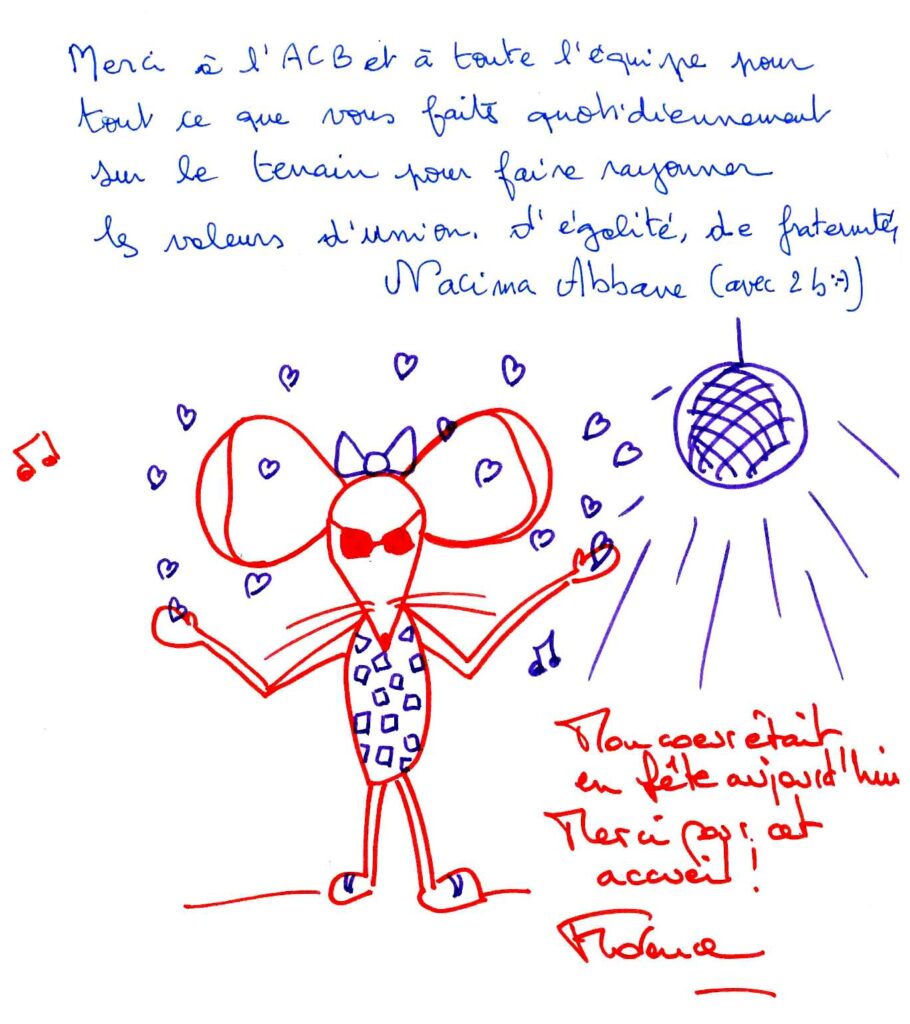 Merci à l'ACB et à toute l'équipe pour
tout ce que vous faits quotidiennement
sur le terrain pour faire rayonner
les valeurs d'union. d'égalité, de fraternité,
Nacima Abbane (avec 2 b :-))
Mon coeur était
en fête aujourd'hui
Merci pour cet
accueil !